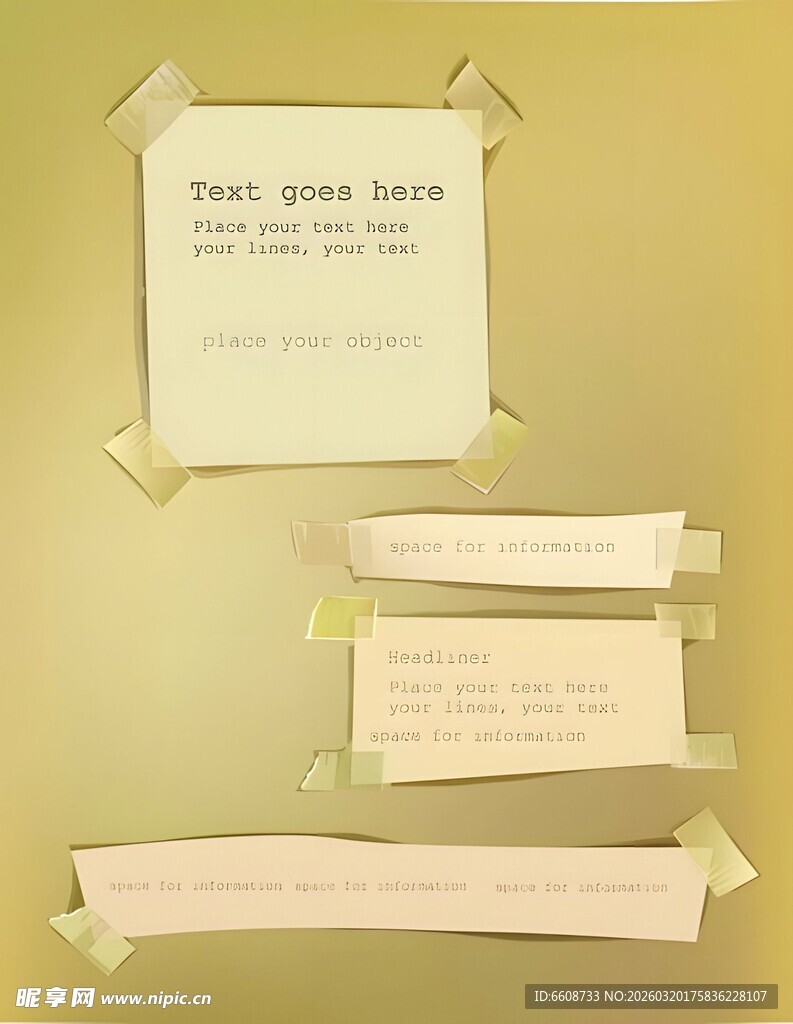 Text goes here
Place your text here
your lines, your text
place your object
space for information
Headliner
Place your text here
your lines, your text
space for information
space for information space for information space for information
昵享网 www.nipic.cn
ID:6608733 NO:20260320175836228107